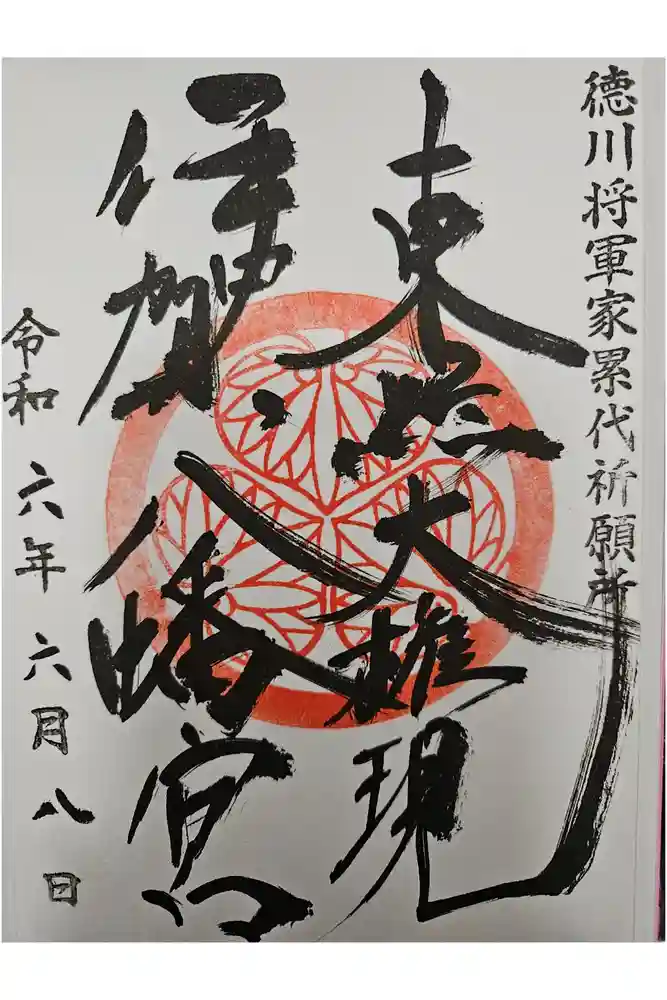 徳川将軍家累代祈願所
東照大権現
伊賀八幡宮
令和六年六月八日